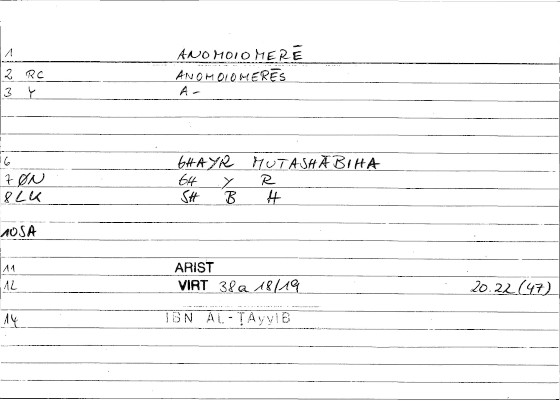 1 ANOMOIOMERĒ
2 RC ANOMOIOMERĒS
3 Y A-
6 GHAYR MUTASHĀBIHA
7 ØN GH Y R
8 LK SH B H
10 SA
11 ARIST
12 VIRT 38a 18/19 20.22 (47)
14 IBN AL-ṬAyyIB